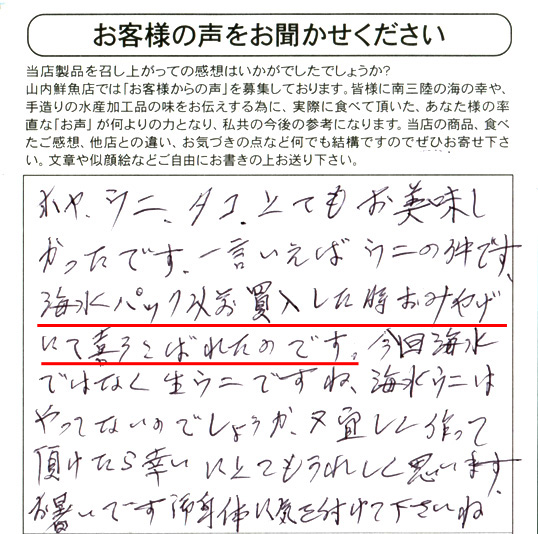 お客様の声をお聞かせください
当店製品を召し上がっての感想はいかがでしたでしょうか?
山内鮮魚店では「お客様からの声」を募集しております。皆様に南三陸の海の幸や、
手造りの水産加工品の味をお伝えする為に、実際に食べて頂いた、あなた様の率
直な「お声」が何よりの力となり、私共の今後の参考になります。当店の商品、食べ
たご感想、他店との違い、お気づきの点など何でも結構ですのでぜひお寄せ下さ
い。文章や似顔絵などご自由にお書きの上お送り下さい。
ホヤ、ウニ、タコ、とてもお美味し
かったです、一言いえばウニの件です、
海水パック以前買入した時おみやげ
にて喜ろこばれたのです。今回海水
ではなく生ウニですね、海水ウニは
やってないのでしょうか、又宜しく作って
頂けたら幸いにとてもうれしく思います、
お暑いです御身体に気を付けて下さいね